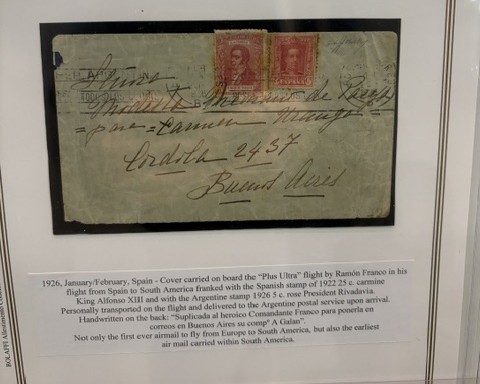 Señora
de
= para = Carmen
Cordoba 2437
Buenos Aires
ESPAÑA
1926, January/February, Spain - Cover carried on board the “Plus Ultra” flight by Ramón Franco in his
flight from Spain to South America franked with the Spanish stamp of 1922 25 c. carmine
King Alfonso XIII and with the Argentine stamp 1926 5 c. rose President Rivadavia.
Personally transported on the flight and delivered to the Argentine postal service upon arrival.
Handwritten on the back: “Suplicada al heroico Comandante Franco para ponerla en
correos en Buenos Aires su compº A Galan”.
Not only the first ever airmail to fly from Europe to South America, but also the earliest
air mail carried within South America.
BOLAFFI